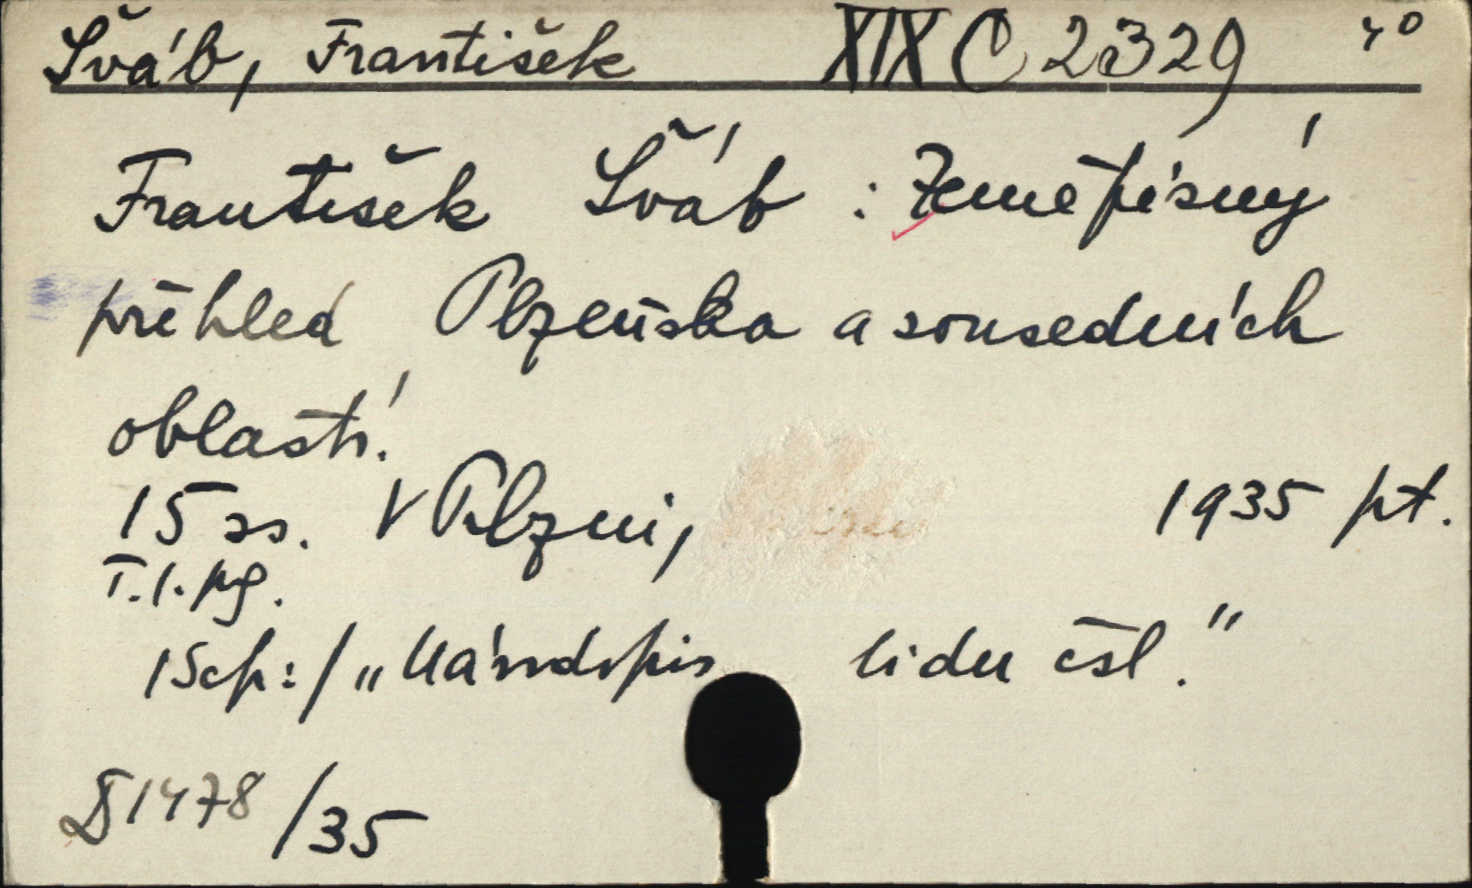 Šváb, František XIX C 2329 4°
František Šváb : Zeměpisný
přehled Plzeňska a sousedních
oblastí.
15 ss. V Plzni, 1935 pt.
T. 1. pg.
/Sep: / „Národopis lidu čsl."
1478/35